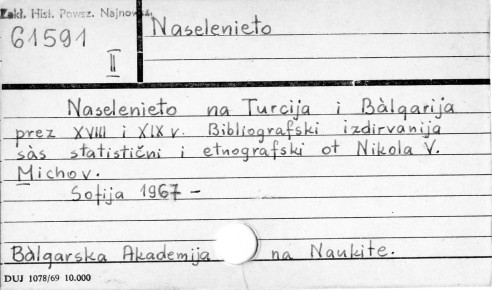 Zakł. Hist. Powsz. Najnowsz.
61591
II
Naselenieto
Naselenieto na Turcija i Bàlgarija
prez XVIII i XIX v. Bibliografski izdirvanija
sàs statistični i etnografski ot Nikola V.
Michov.
Sofija 1967 –
Bàlgarska Akademija na Naukite.
DUJ 1078/69 10.000